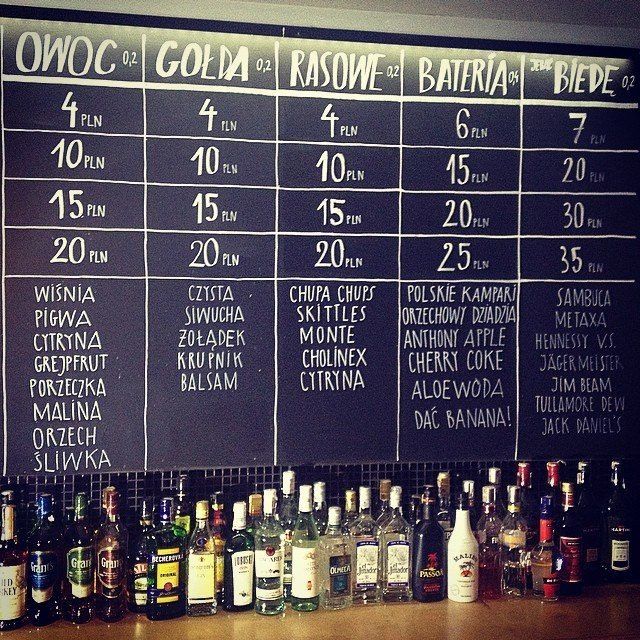 OWOC 0,2 GOŁDA 0,2 RASOWE 0,2 BATERIA 0,4 JEBAĆ BIEDĘ 0,2
4 PLN 4 PLN 4 PLN 6 PLN 7 PLN
10 PLN 10 PLN 10 PLN 15 PLN 20 PLN
15 PLN 15 PLN 15 PLN 20 PLN 30 PLN
20 PLN 20 PLN 20 PLN 25 PLN 35 PLN
WIŚNIA
PIGWA
CYTRYNA
GREJPFRUT
PORZECZKA
MALINA
ORZECH
ŚLIWKA
CZYSTA
SIWUCHA
ŻOŁĄDEK
KRUPNIK
BALSAM
CHUPA CHUPS
SKITTLES
MONTE
CHOLINEX
CYTRYNA
POLSKIE KAMPARI
ORZECHOWY DZIADZIA
ANTHONY APPLE
CHERRY COKE
ALOEWODA
DAĆ BANANA!
SAMBUCA
METAXA
HENNESSY V.S.
JÄGERMEISTER
JIM BEAM
TULLAMORE DEW
JACK DANIEL'S
Grant's
Grant's
BECHEROVKA
ORIGINAL
OLMECA
PASSOA
MALIBU